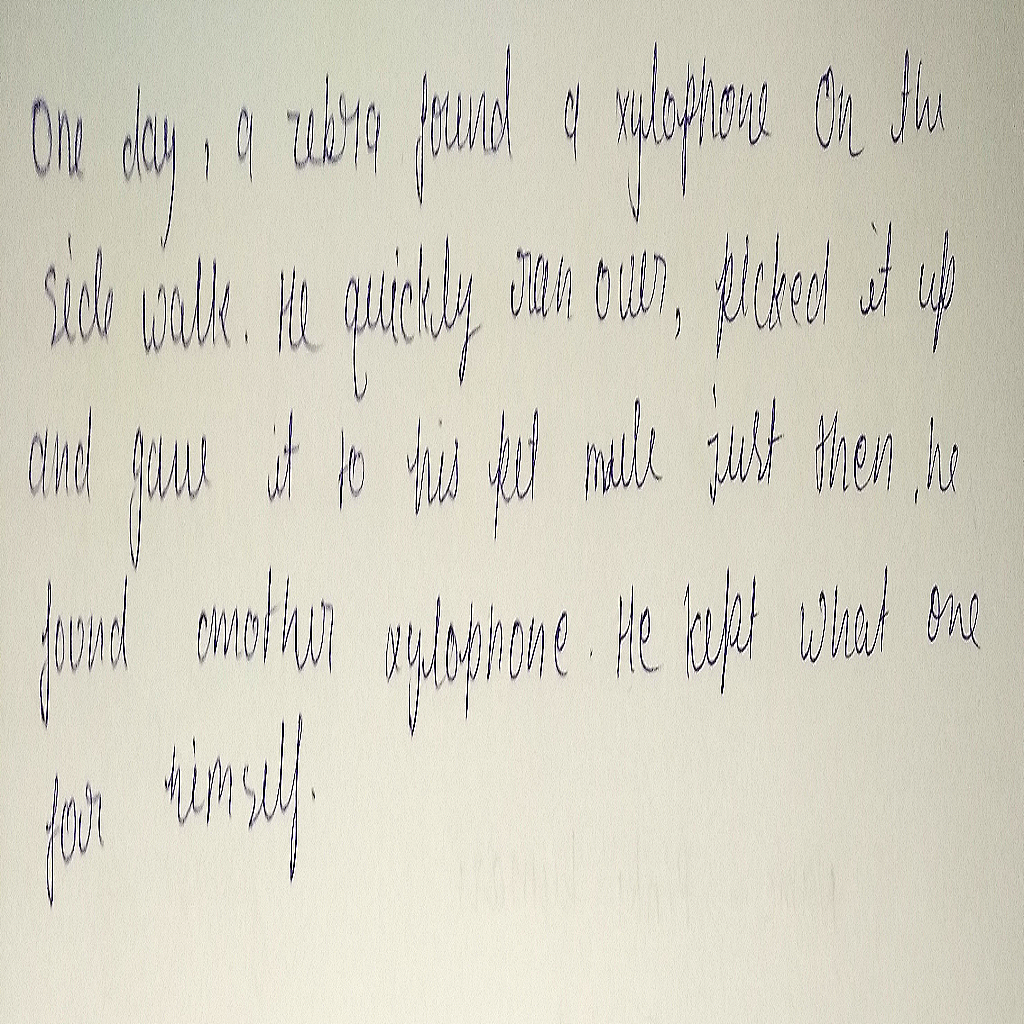 One day, a zebra found a xylophone On the
side walk. He quickly ran over, picked it up
and gave it to his pet mule just then, he
found another xylophone. He kept what one
for himself.